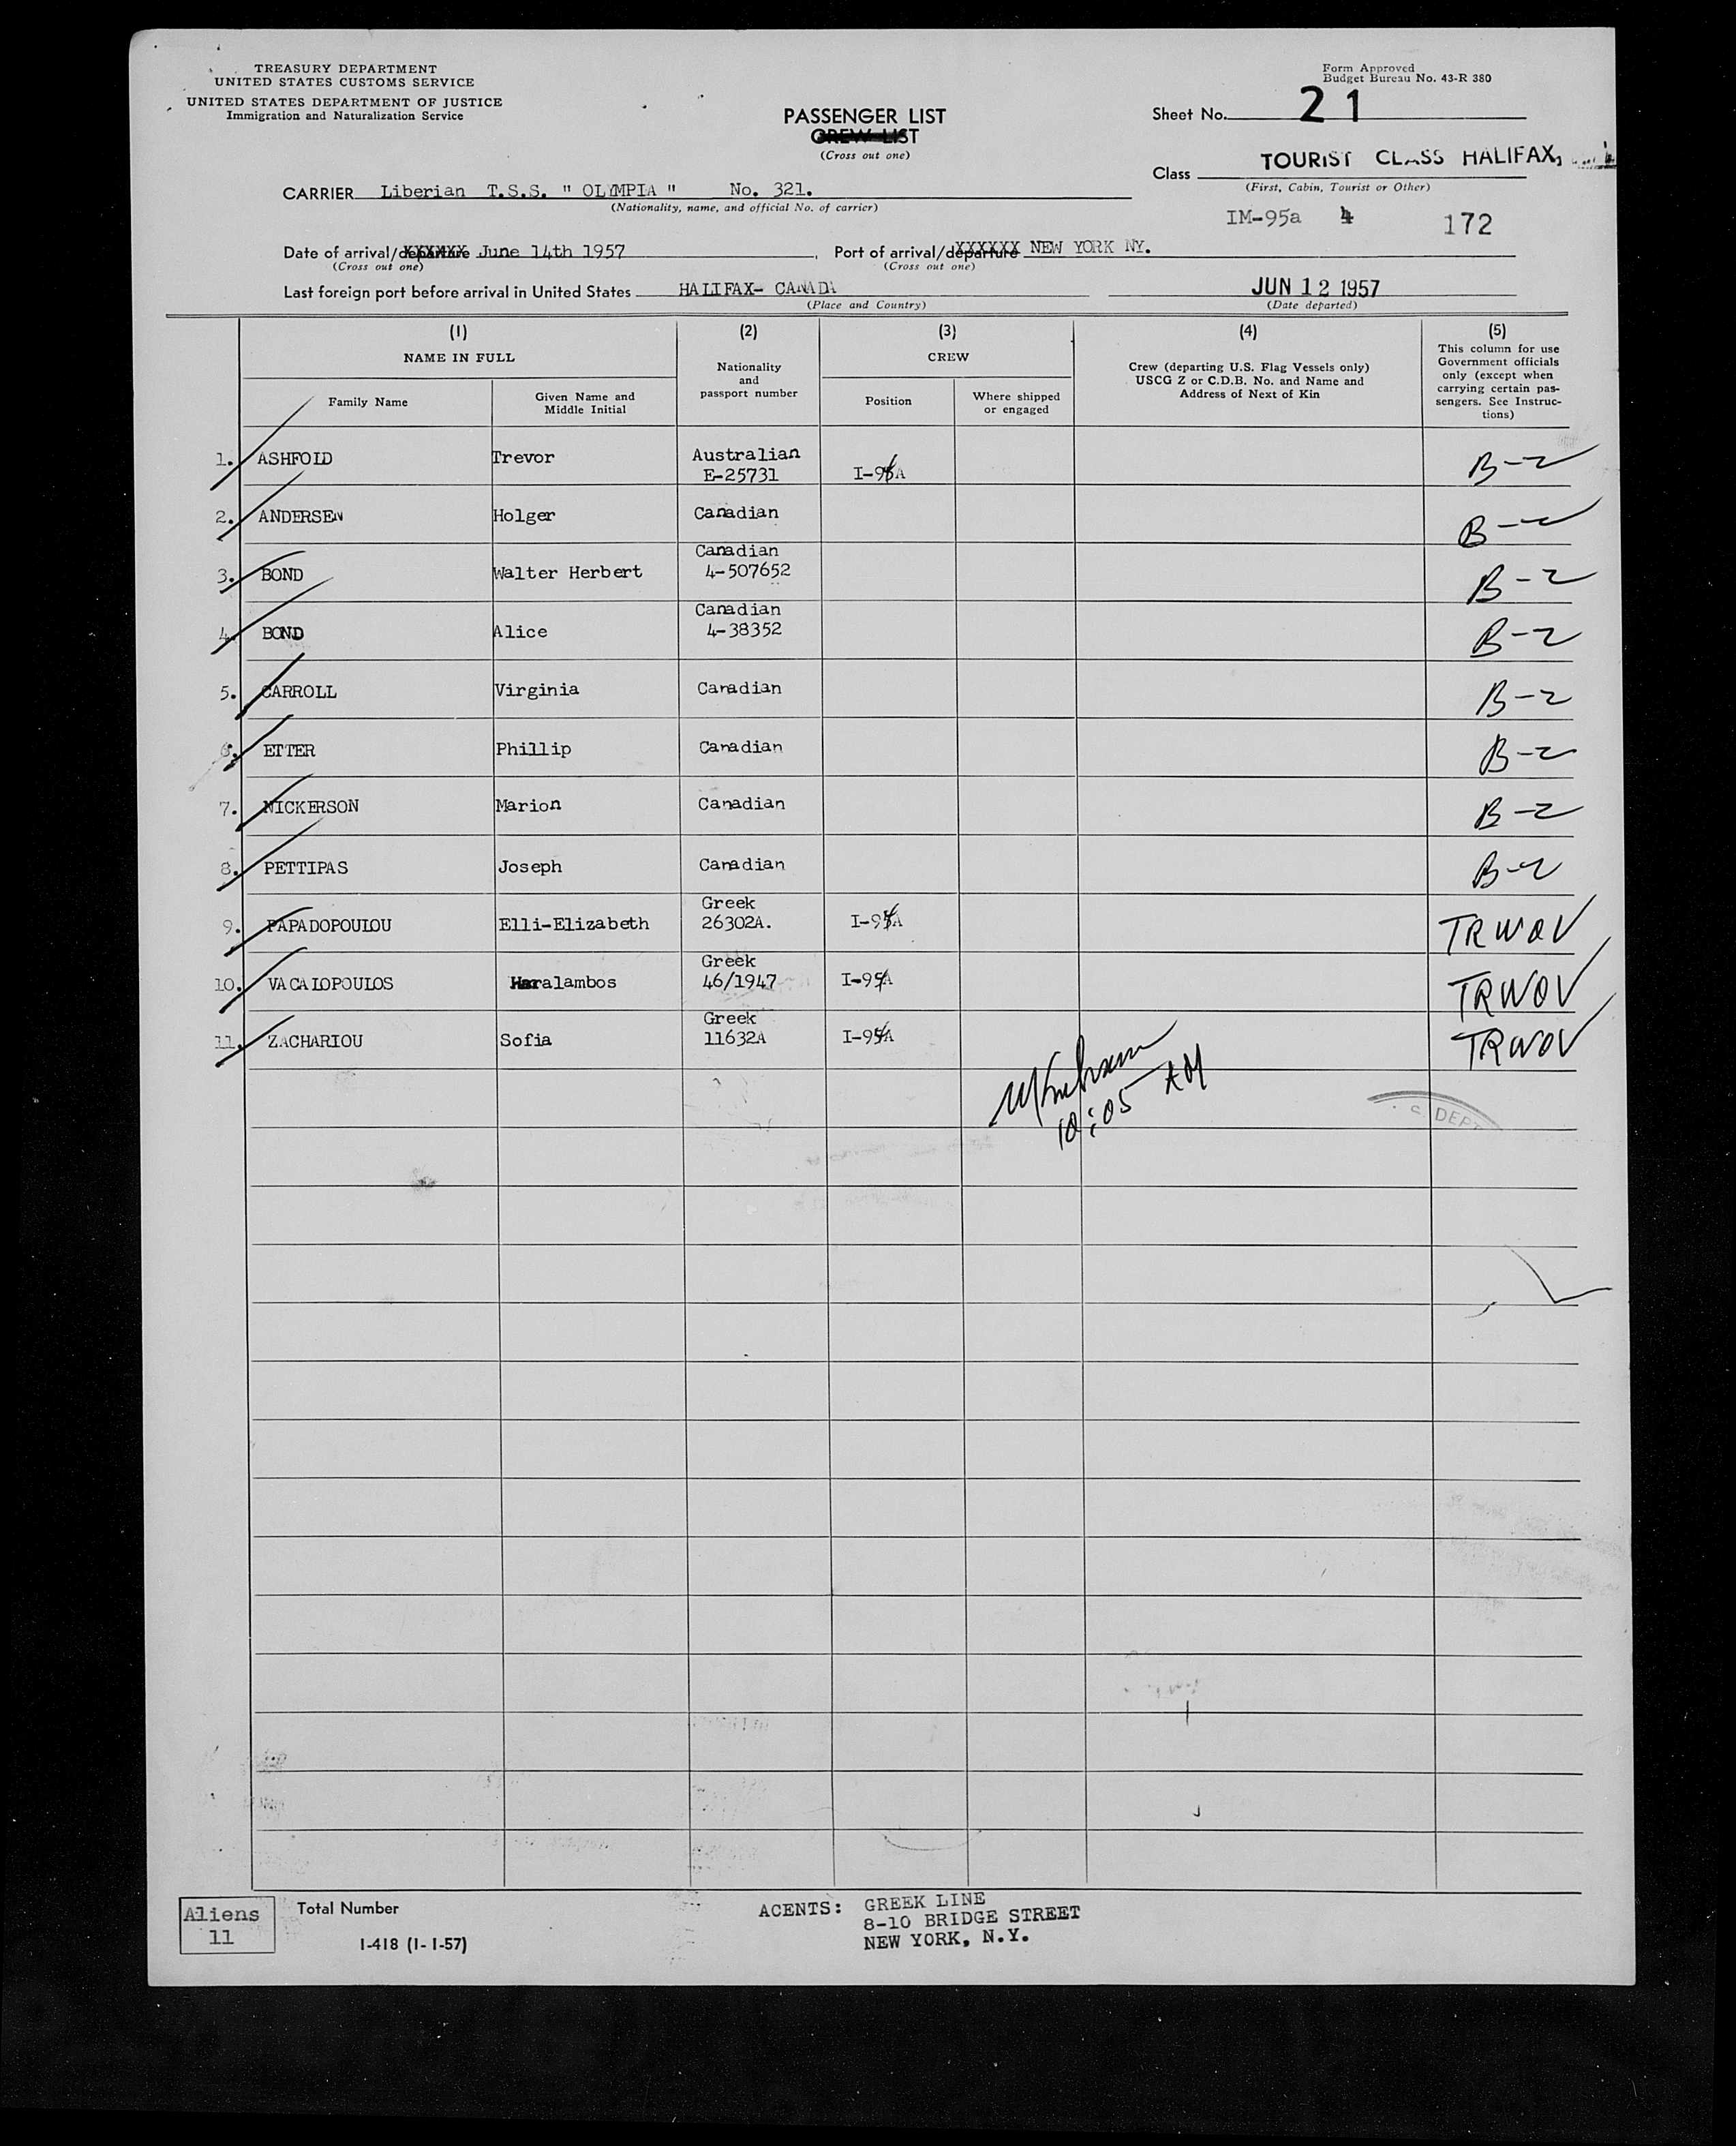 TREASURY DEPARTMENT
UNITED STATES CUSTOMS SERVICE
UNITED STATES DEPARTMENT OF JUSTICE
Immigration and Naturalization Service
Form Approved
Budget Bureau No. 43-R 380
PASSENGER LIST
CREW LIST
(Cross out one)
Sheet No. 21
Class TOURIST CLASS HALIFAX,
(First, Cabin, Tourist or Other)
CARRIER Liberian T.S.S. " OLYMPIA " No. 321.
(Nationality, name, and official No. of carrier)
IM-95a 4 172
Date of arrival/departure June 14th 1957, Port of arrival/departure NEW YORK NY.
(Cross out one) (Cross out one)
Last foreign port before arrival in United States HALIFAX- CANADA JUN 12 1957
(Place and Country) (Date departed)
(1) (2) (3) (4) (5)
NAME IN FULL
Family Name
Given Name and
Middle Initial
Nationality
and
passport number
CREW
Position
Where shipped
or engaged
Crew (departing U.S. Flag Vessels only)
USCG Z or C.D.B. No. and Name and
Address of Next of Kin
This column for use
Government officials
only (except when
carrying certain pas-
sengers. See Instruc-
tions)
1. ASHFOLD Trevor Australian
E-25731 I-95A B-2
2. ANDERSEN Holger Canadian B-2
3. BOND Walter Herbert Canadian
4-507652 B-2
4. BOND Alice Canadian
4-38352 B-2
5. CARROLL Virginia Canadian B-2
6. ETTER Phillip Canadian B-2
7. NICKERSON Marion Canadian B-2
8. PETTIPAS Joseph Canadian B-2
9. PAPADOPOULOU Elli-Elizabeth Greek
26302A. I-95A TRWOV
10. VACALOPOULOS Haralambos Greek
46/1947 I-95A TRWOV
11. ZACHARIOU Sofia Greek
11632A I-95A TRWOV
10:05 AM
DEPT
Aliens
11
Total Number
I-418 (1-1-57)
AGENTS: GREEK LINE
8-10 BRIDGE STREET
NEW YORK, N.Y.